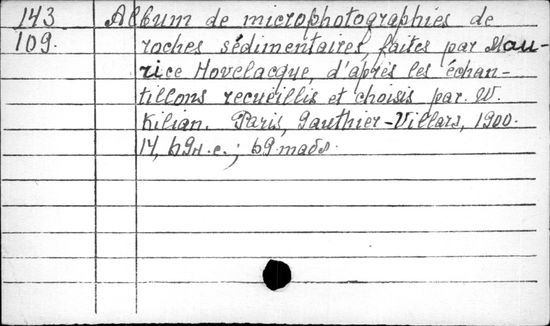 143 Album de microphotographies de
109. roches sédimentaires, faites par Mau-
rice Hovelacque, d'après les échan-
tillons recueillis et choisis par W.
Kilian. Paris, Gauthier-Villars, 1900.
14, 69 н.с.; 69 табл.